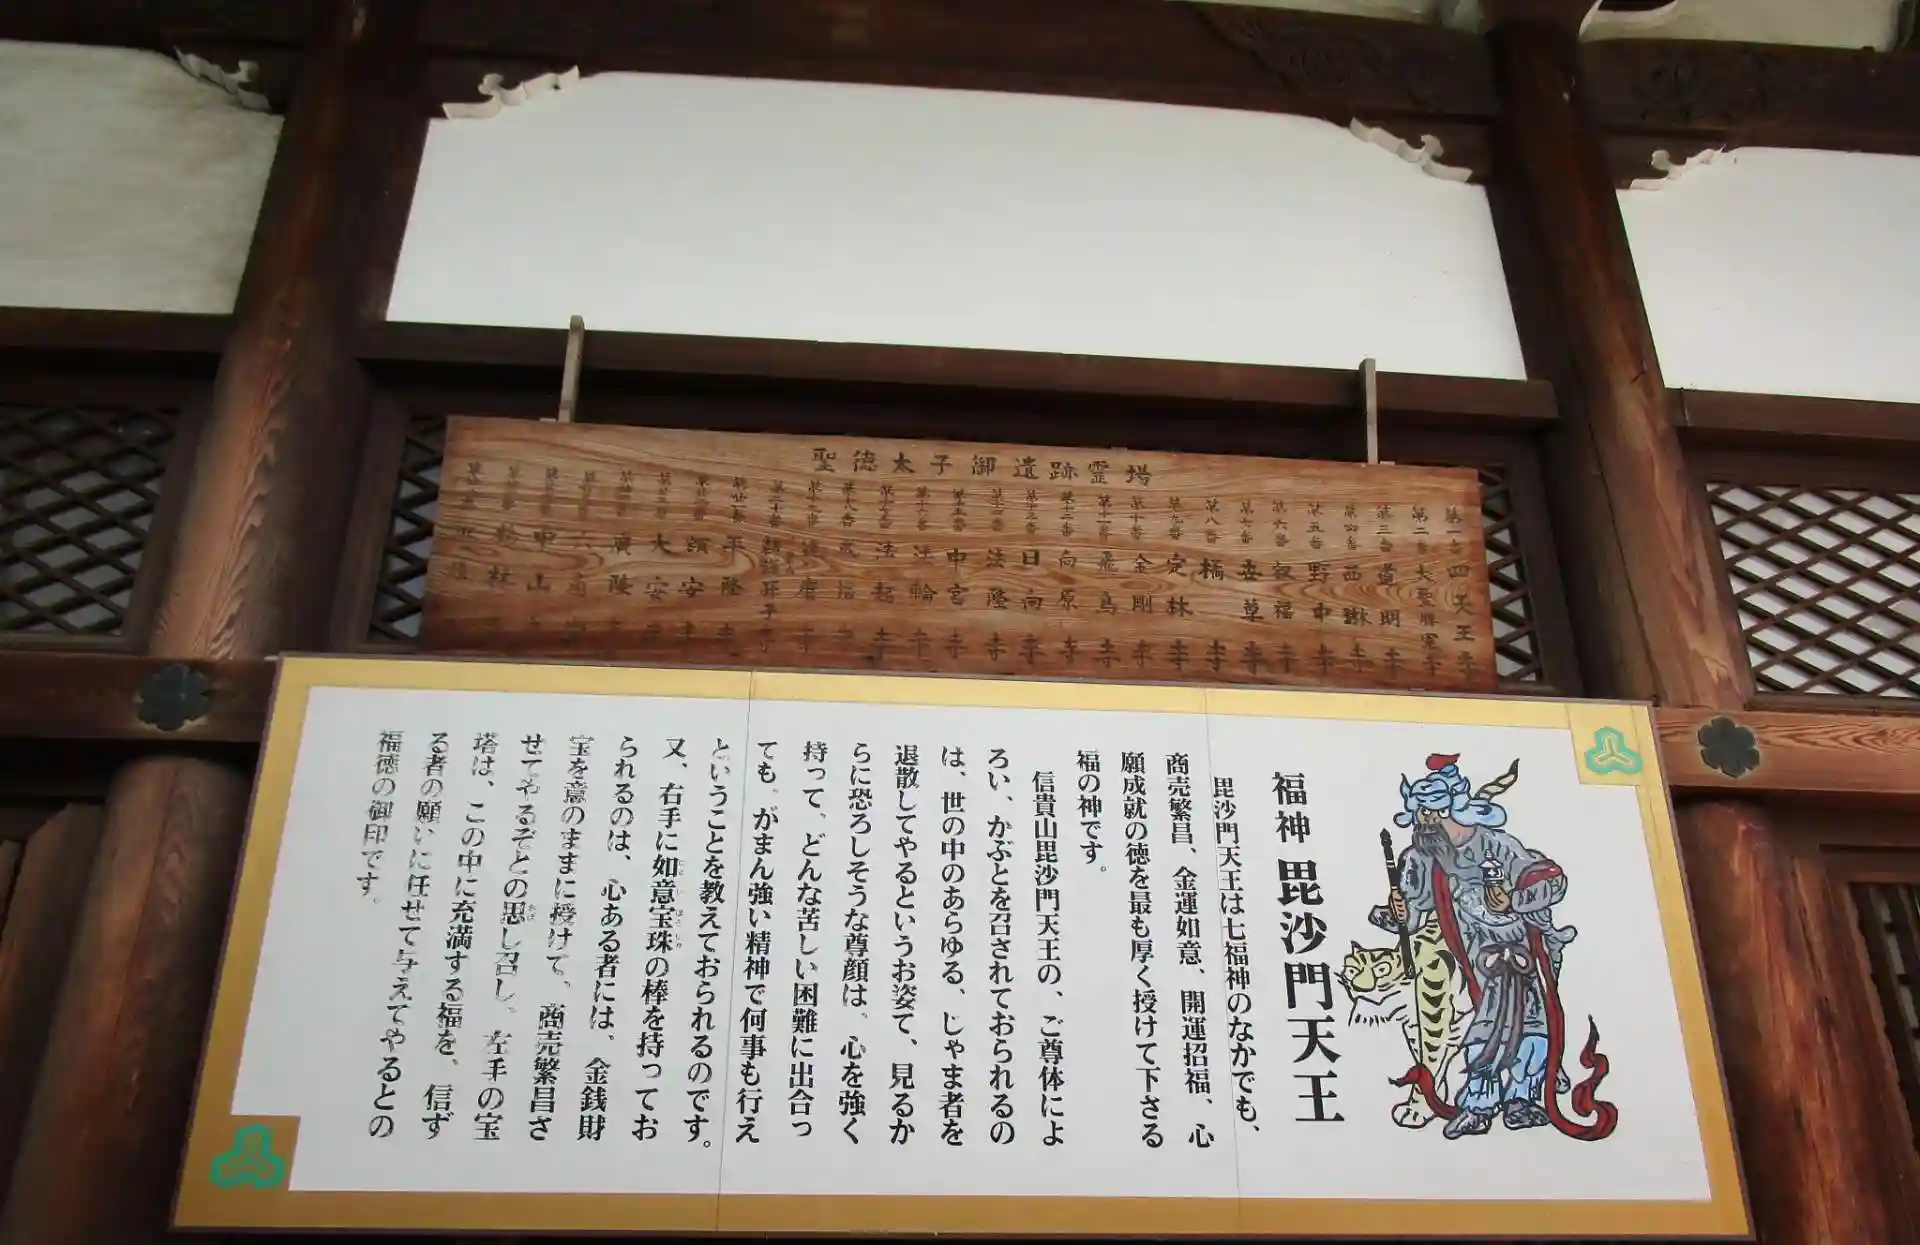 聖徳太子御遺跡霊場
第一番 四天王寺
第二番 大聖勝軍寺
第三番 道明寺
第四番 西琳寺
第五番 野中寺
第六番 叡福寺
第七番 世尊寺
第八番 橘寺
第九番 定林寺
第十番 金剛寺
第十一番 飛鳥寺
第十二番 向原寺
第十三番 日向寺
第十四番 法隆寺
第十五番 中宮寺
第十六番 法輪寺
第十七番 法起寺
第十八番 成福寺
第十九番 達磨寺
第二十番 朝護孫子寺
第廿一番 平隆寺
額安寺
大安寺
広隆寺
六角堂
福神 毘沙門天王
毘沙門天王は七福神のなかでも、
商売繁昌、金運如意、開運招福、心
願成就の徳を最も厚く授けて下さる
福の神です。
信貴山毘沙門天王の、ご尊体によ
ろい、かぶとを召されておられるの
は、世の中のあらゆる、じゃま者を
退散してやるというお姿で、見るか
らに恐ろしそうな尊顔は、心を強く
持って、どんな苦しい困難に出合っ
ても、がまん強い精神で何事も行え
ということを教えておられるのです。
又、右手に如意宝珠の棒を持ってお
られるのは、心ある者には、金銭財
宝を意のままに授けて、商売繁昌さ
せてやるぞとの思し召し、左手の宝
塔は、この中に充満する福を、信ず
る者の願いに任せて与えてやるとの
福徳の御印です。